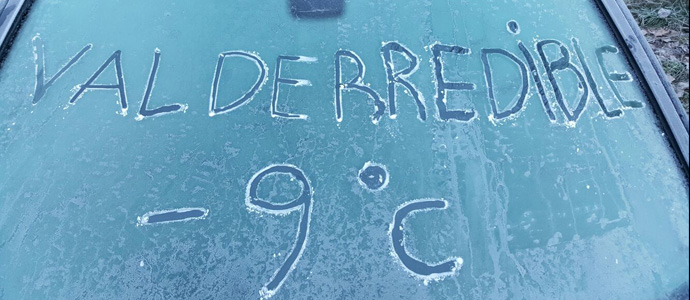 VALDERREDIBLE
-9°C